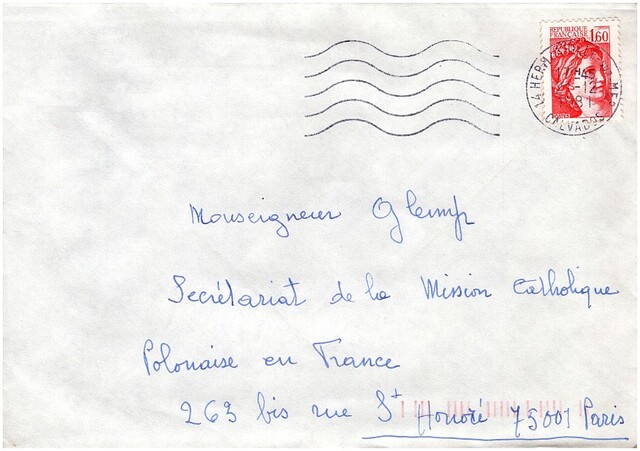 REPUBLIQUE
FRANCAISE 1,60
CALVADOS
Monseigneur Glemp
Secrétariat de la Mission Catholique
Polonaise en France
263 bis rue St Honoré 75001 Paris